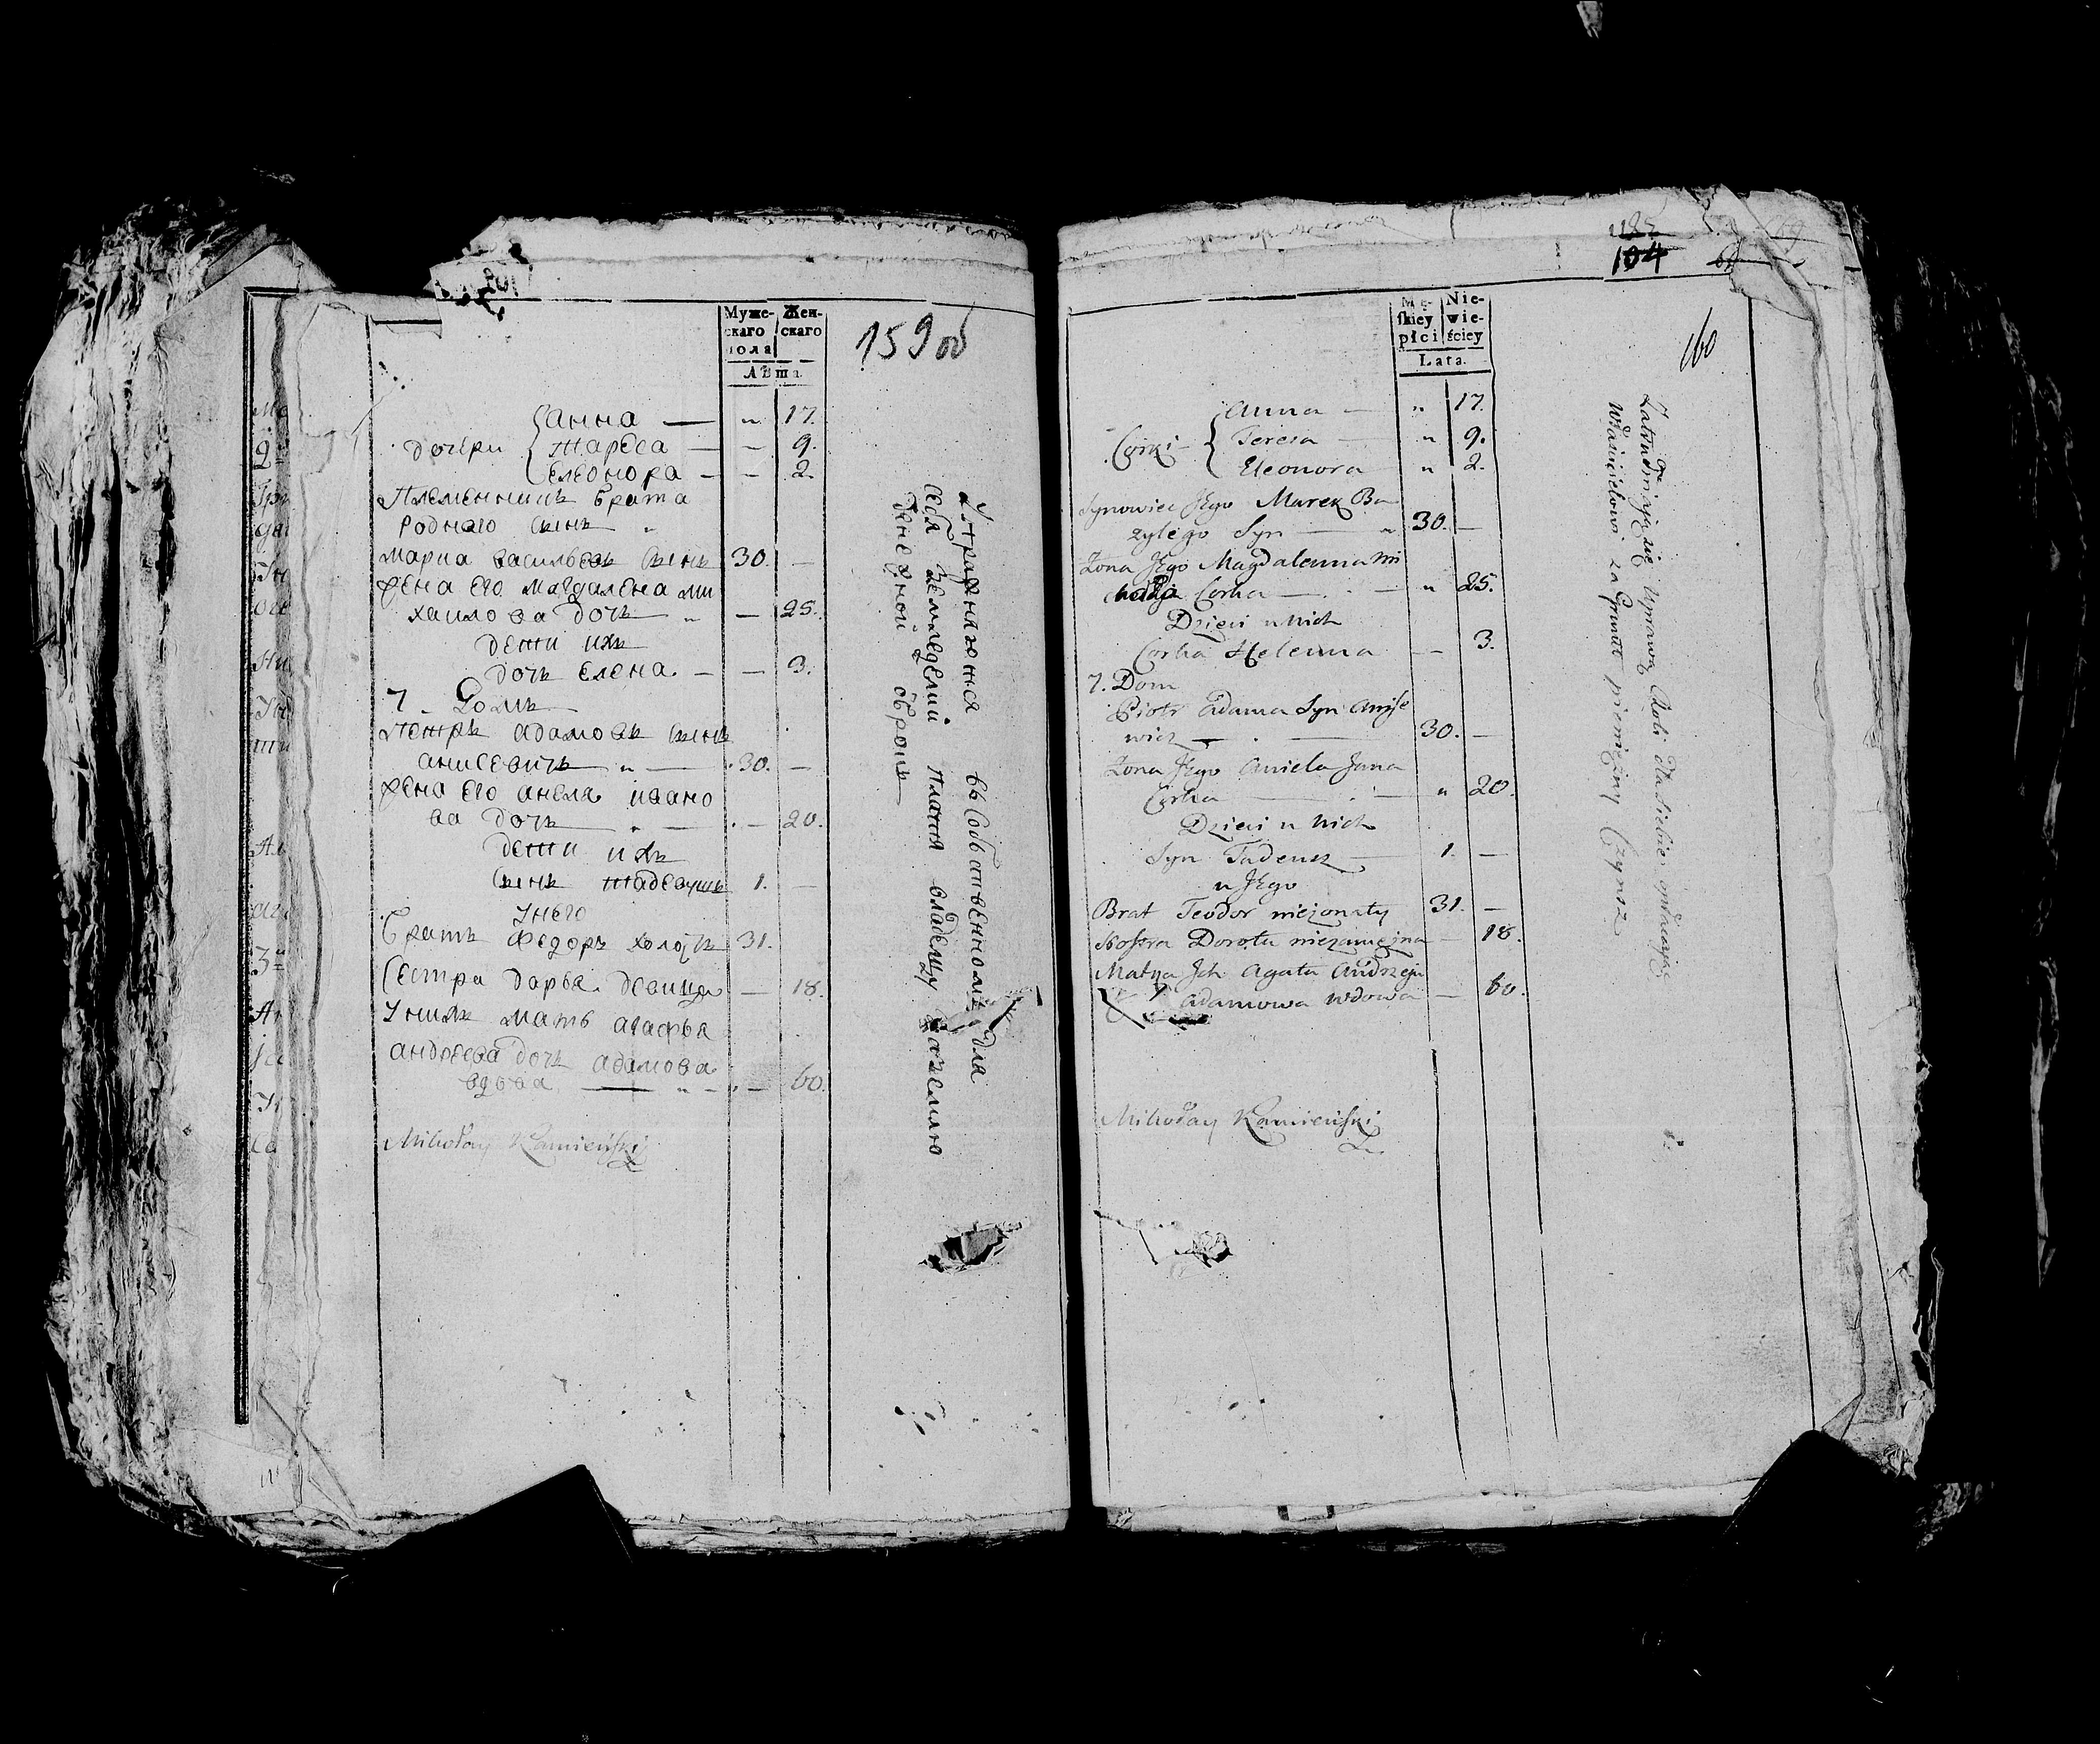 Муже-
скаго
пола
Жен-
скаго
Лѣта
159 об
дочери
Анна — „ 17.
Тареса — — 9.
Елеонора — — 2.
Племенникъ брата
роднаго сынъ „
Марка Васильевъ сынъ 30. —
Жена его Магдалена Ми
хаилова дочь „ — 25.
дети ихъ
дочь Елена. — — 3.
7. Домъ
Петръ Адамовъ сынъ
Анисевичъ „ — 30. —
Жена его Анеля Ивано
ва дочь — 20.
дети ихъ
сынъ Тадеушъ 1. —
У него
Братъ Федоръ холостъ 31.
Сестра Дарья девица — 18.
У нихъ мать Агафья
Андреева дочь Адамова
вдова — „ — 60.
Mikołay Kamieński
Упражняются въ собственномъ для
себя земледелии платя владельцу за землю
денежной оброкъ
104
160
Mę-
skiey
płci
Nie-
wie-
ściey
Lata.
Corki
Anna — „ 17.
Teresa — „ 9.
Eleonora „ 2.
Synowiec Jego Marek Ba
zylego Syn — „ 30. —
Zona Jego Magdalenna Mi
chała Corka — „ 25.
Dzieci u Nich
Corka Helenna — 3.
7. Dom
Piotr Adama Syn Anise
wicz — 30. —
Zona Jego Aniela Jana
Corka — „ 20.
Dzieci u Nich
Syn Tadeusz — 1. —
u Jego
Brat Teodor niezonaty 31. —
Siostra Dorota niezamężna — 18.
Matka Ich Agata Andrzeja
Adamowa wdowa — 60.
Mikołay Kamieński
Zatrudniają się Uprawą Roli dla siebie opłacając
Właścicielowi za Grunt pieniężny Czynsz